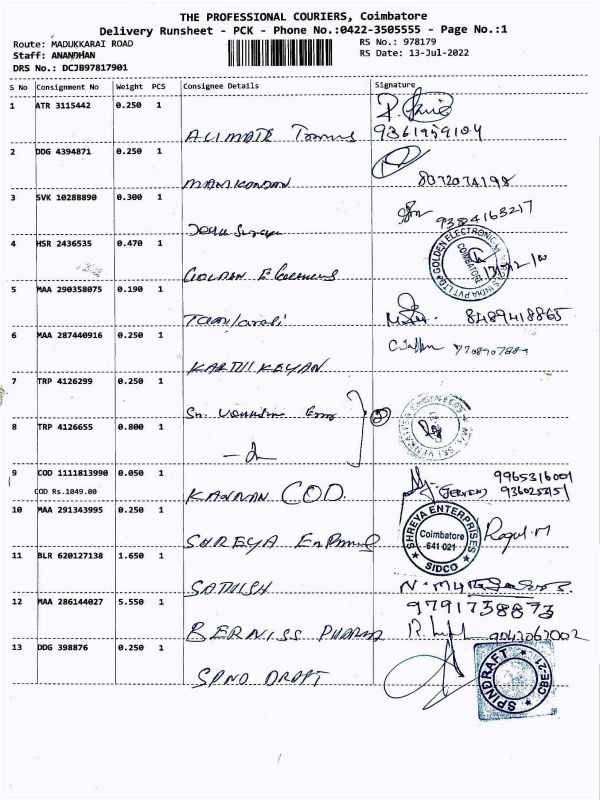 THE PROFESSIONAL COURIERS, Coimbatore
Delivery Runsheet - PCK - Phone No.:0422-3505555 - Page No.:1
Route: MADUKKARAI ROAD RS No.: 978179
Staff: ANANDHAN RS Date: 13-Jul-2022
DRS No.: DCJB97817901
S No Consignment No Weight PCS Consignee Details Signature
1 ATR 3115442 0.250 1
9361959104
2 DDG 4394871 0.250 1
MANIKANDAN 8072074198
3 SVK 10288890 0.300 1
9384163217
4 HSR 2436535 0.470 1
GOLDEN ELECTRONIC
COIMBATORE
GOLDEN
5 MAA 290358075 0.190 1
Tamilarasi 8489418865
6 MAA 287440916 0.250 1
KARTHIKEYAN
7 TRP 4126299 0.250 1
Sri
8 TRP 4126655 0.800 1
9 COD 1111813990 0.050 1
COD Rs.1049.00
KANNAN COD 9965316001
10 MAA 291343995 0.250 1
SHREYA ENTERPRISES
Coimbatore
641 021
SIDCO
SHREYA
Ragul.M
11 BLR 620127138 1.650 1
SATHISH
12 MAA 286144027 5.550 1
9791738873
BERNISS PHARMA 9043067002
13 DDG 398876 0.250 1
SPINDRAFT
CBE-21